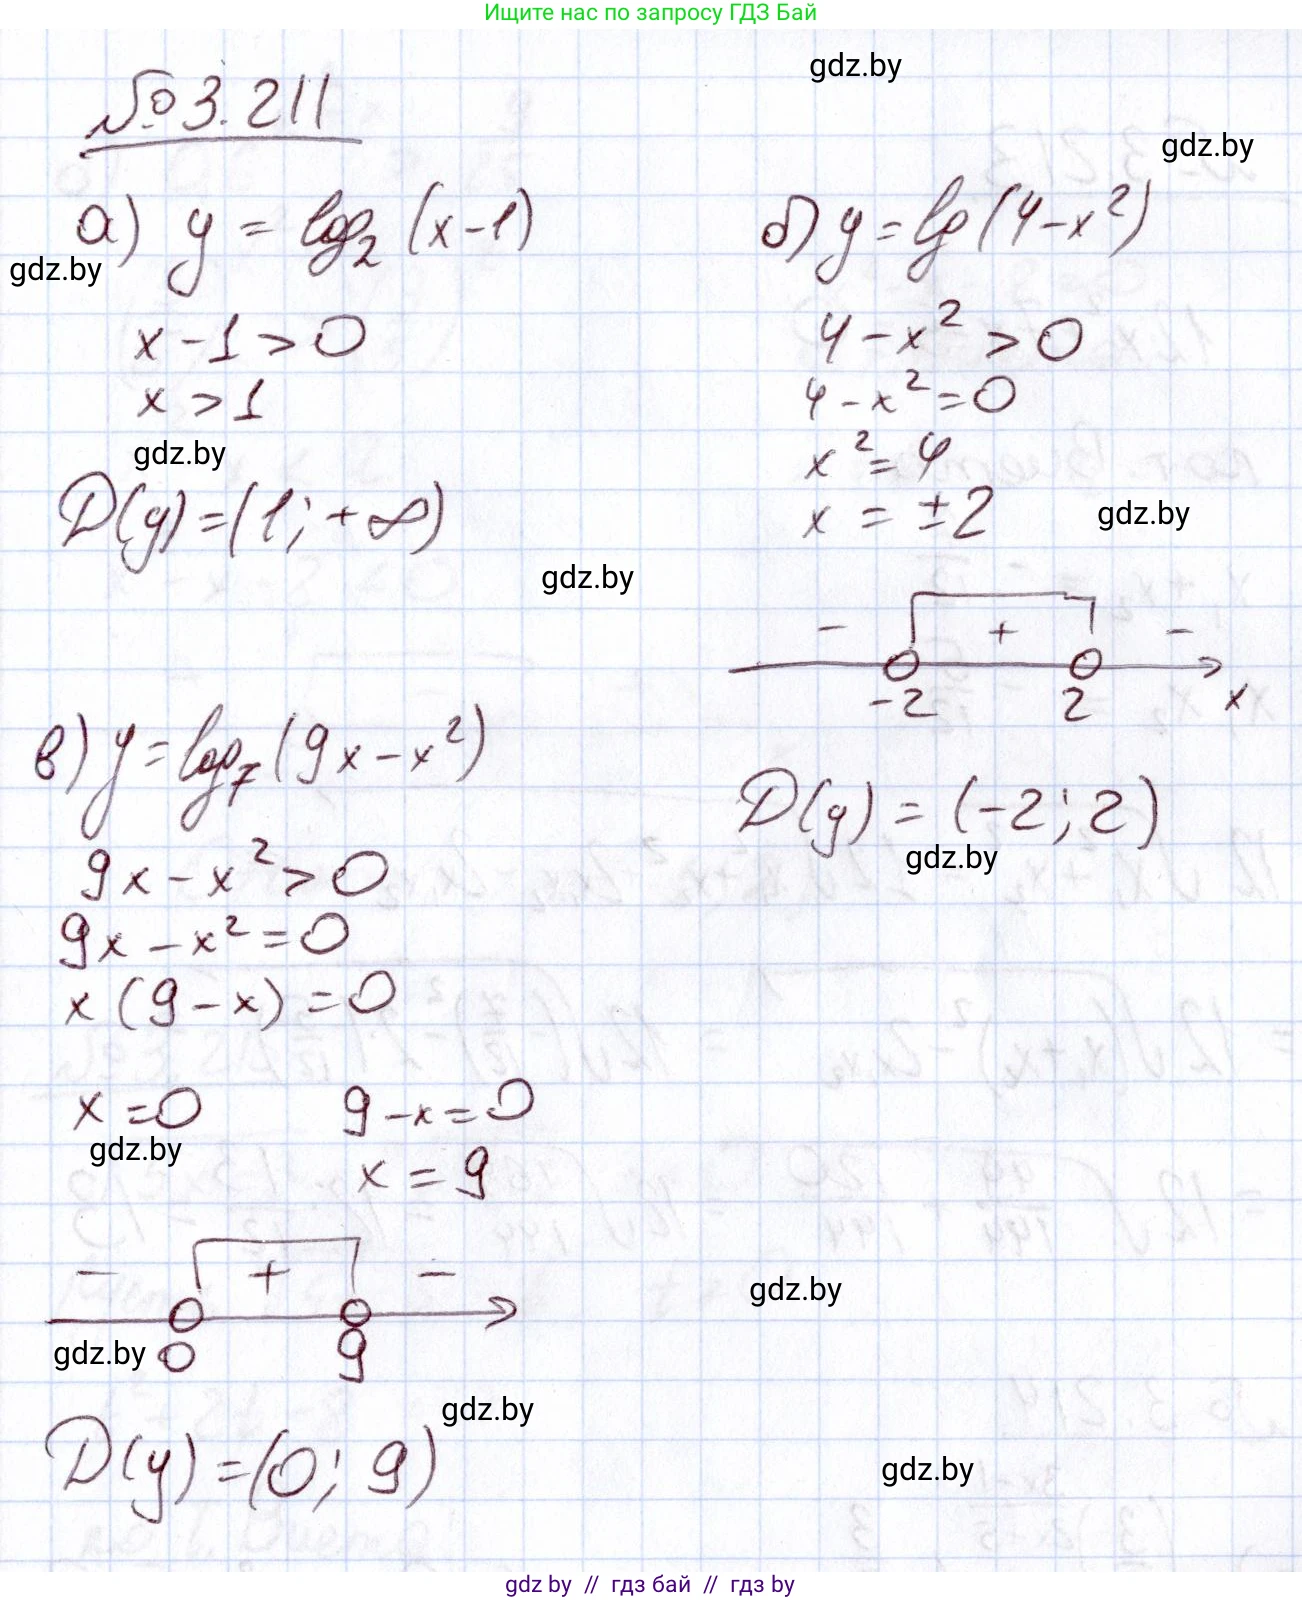 Ищите нас по запросу ГДЗ Бай
gdz.by
№ 3.211
gdz.by
а) y = log₂ (x-1)
gdz.by
x - 1 > 0
x > 1
gdz.by
D(y) = (1; +∞)
gdz.by
б) y = lg (4-x²)
4 - x² > 0
4 - x² = 0
x² = 4
x = ±2
gdz.by
- + -
-2 2 x
D(y) = (-2; 2)
gdz.by
в) y = log₇ (9x - x²)
9x - x² > 0
9x - x² = 0
x (9 - x) = 0
x = 0 9 - x = 0
gdz.by
x = 9
- + -
gdz.by
gdz.by 0 9
gdz.by
D(y) = (0; 9)
gdz.by
gdz by // гдз бай // гдз by